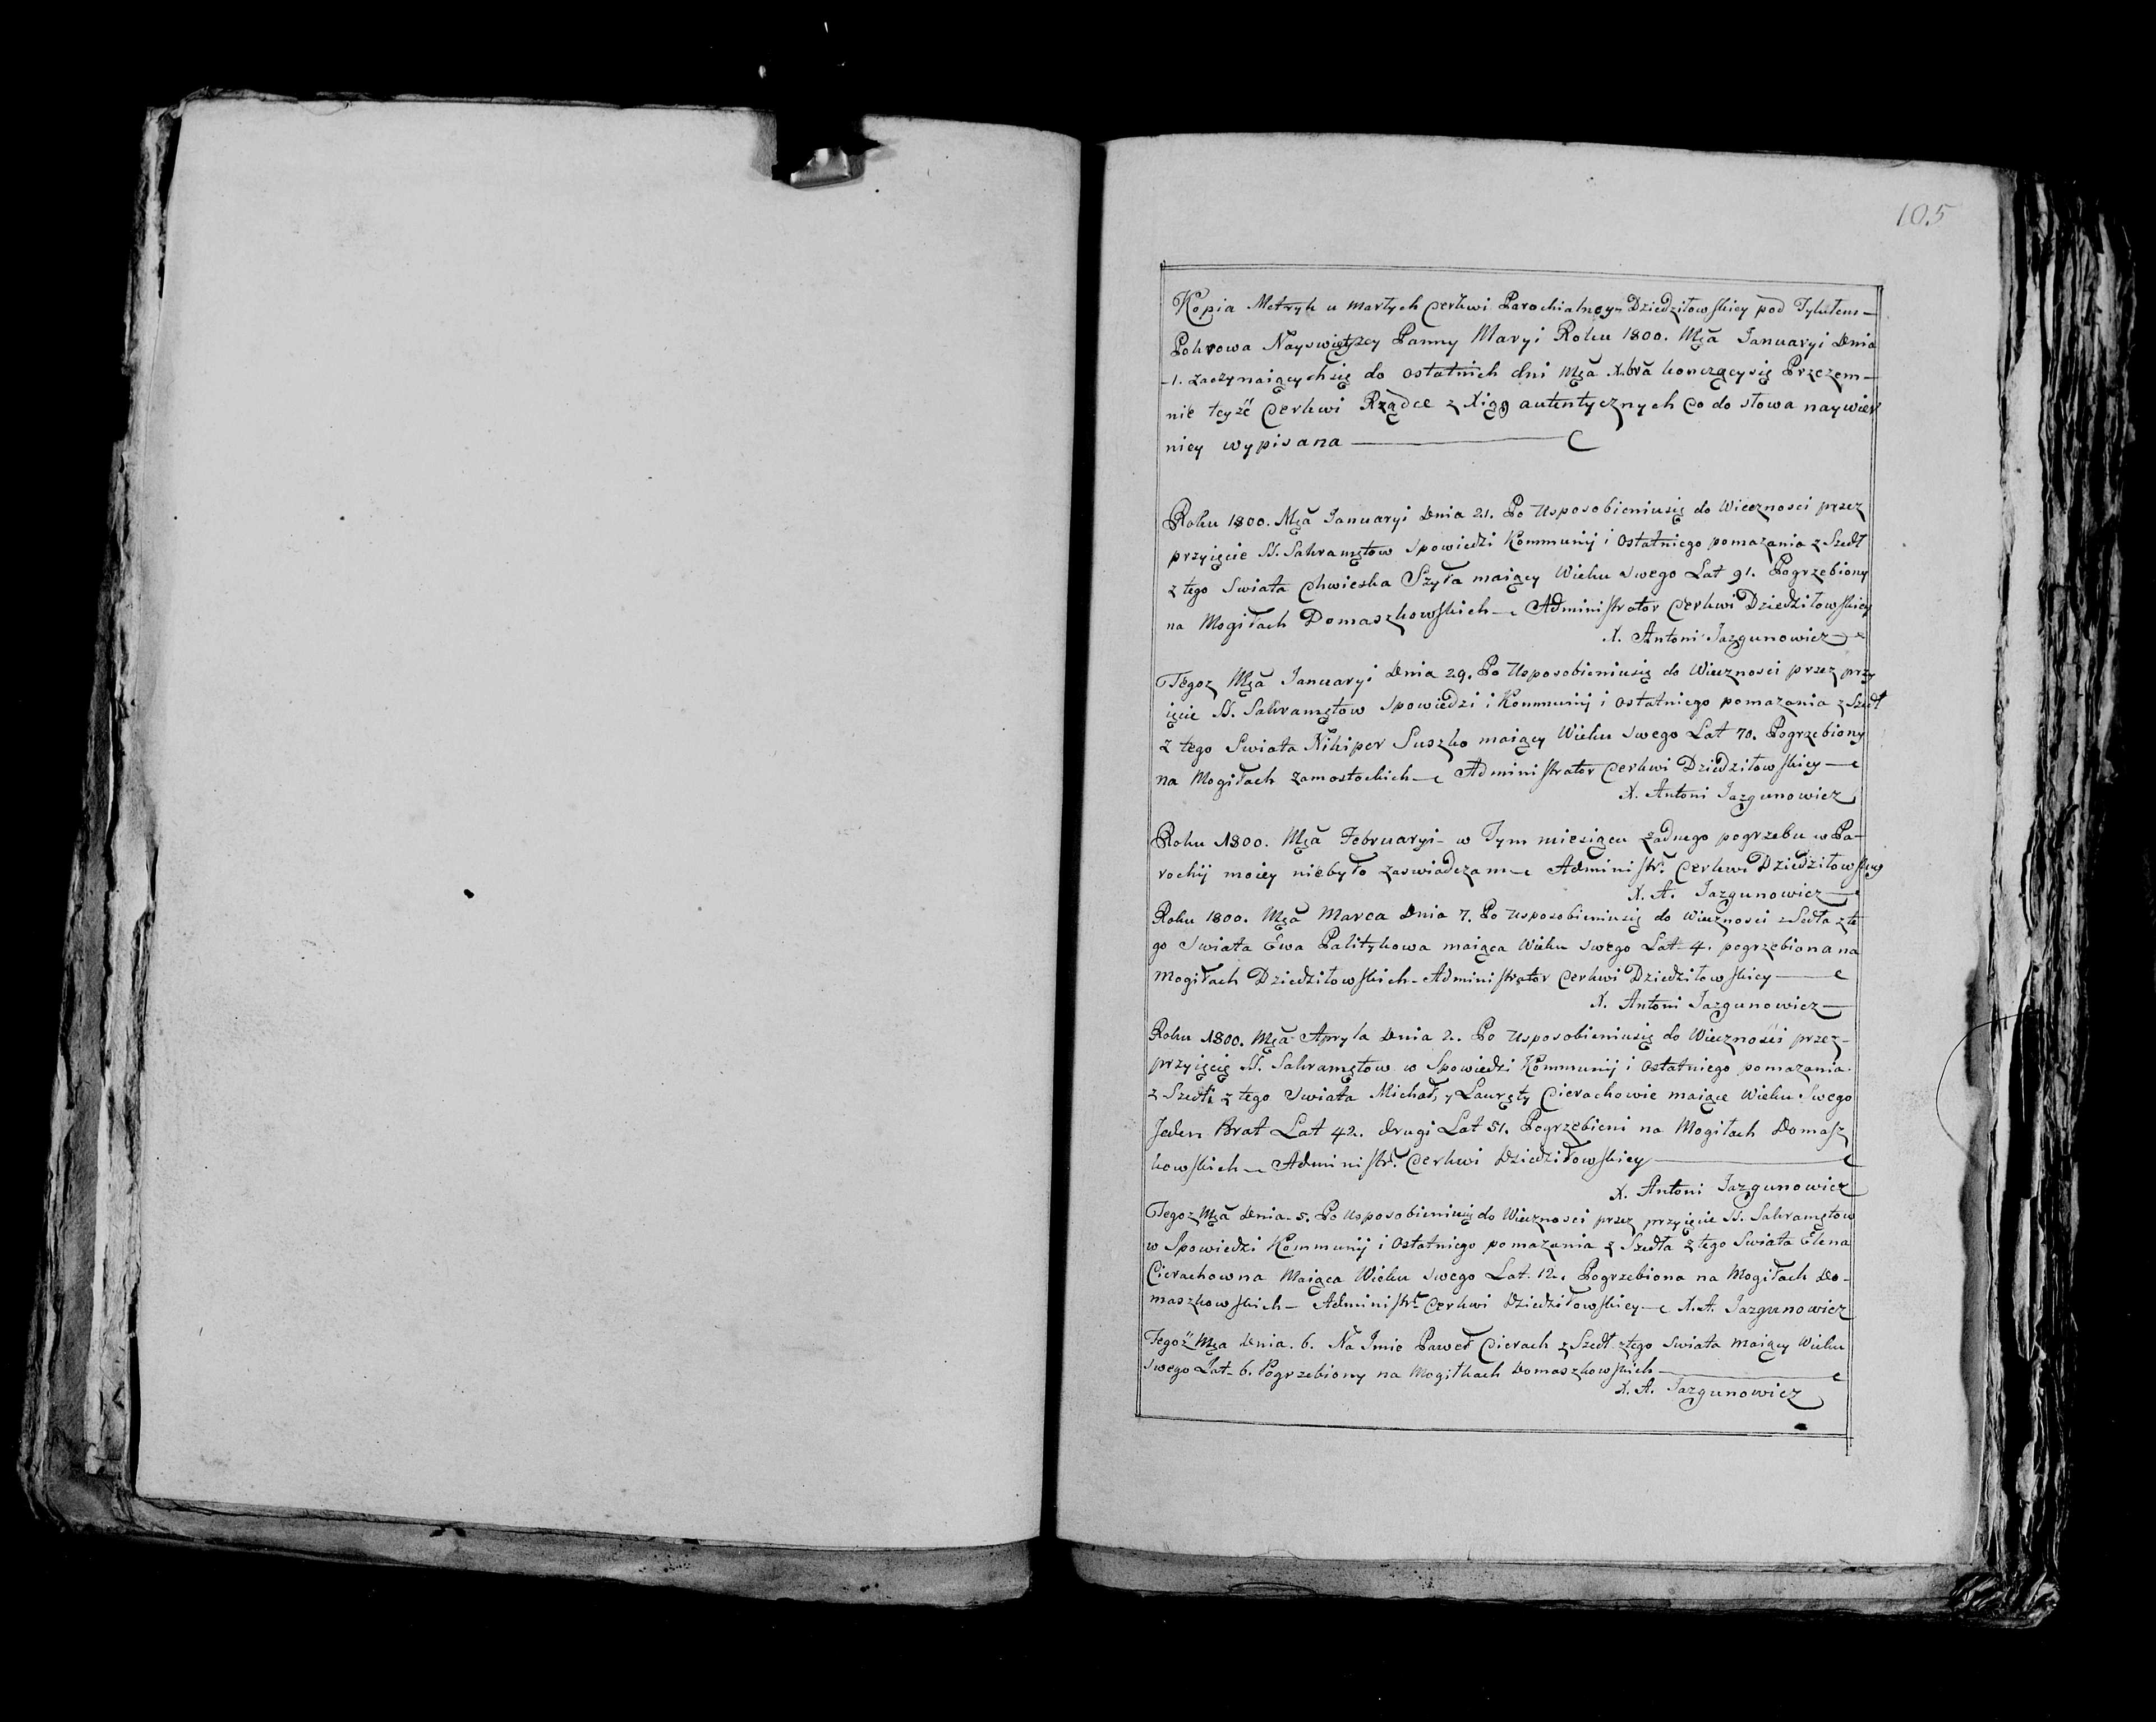 105
Kopia Metryk u marłych Cerkwi Parochialney Dziedziłowskiey pod Tytułem –
Pokrowa Nayswiętszey Panny Maryi Roku 1800. Mca Januaryi Dnia
– 1. zaczynaiących się do ostatnich dni Mca Xbra konczącysię Przezem –
nie teyże Cerkwi Rządce z Xiąg autentycznych Co do słowa naywier
niey wypisana
Roku 1800. Mca Januaryi Dnia 21. Po Usposobieniusię do Wiecznosci przez
przyięcie SS. Sakramętow Spowiedzi Kommunij i Ostatniego pomazania z Szedł
z tego Swiata Chwieska Szyła maiący Wieku swego Lat 91. Pogrzebiony
na Mogiłach Domaszkowskich Administrator Cerkwi Dziedziłowskiey
X. Antoni Jazgunowicz
Tegoz Mca Januaryi Dnia 29. Po Usposobieniusię do Wiecznosci przez przy
ięcie SS. Sakramętow Spowiedzi i Kommunij i ostatniego pomazania z Szedł
z tego Swiata Nikiper Suszko maiący Wieku swego Lat 70. Pogrzebiony
na Mogiłach zamostockich Administrator Cerkwi Dziedziłowskiey
X. Antoni Jazgunowicz
Roku 1800. Mca Februaryi w Tym miesiącu zadnego pogrzebu w Pa –
rochij moiey niebyło zaswiadczam Administr. Cerkwi Dziedziłowskiey
X. A. Jazgunowicz
Roku 1800. Mca Marca Dnia 7. Po Usposobieniusię do Wiecznosci z Sedła z te
go Swiata Ewa Palitykowa maiąca Wieku swego Lat 4. pogrzebiona na
Mogiłach Dziedziłowskich – Administrator Cerkwi Dziedziłowskiey
X. Antoni Jazgunowicz
Roku 1800. Mca Apryla Dnia 2. Po Usposobieniusię do Wieczności przez –
przyięcię SS. Sakramętow w Spowiedzi Kommunij i Ostatniego pomazania.
z Szedłi z tego Swiata Michał, y Lauręty Cierachowie maiące Wieku Swego
Jeden Brat Lat 42. drugi Lat 51. Pogrzebieni na Mogiłach Domasz
kowskich Administr. Cerkwi Dziedziłowskiey
X. Antoni Jazgunowicz
Tegoz Mca Dnia 5. Po Usposobieniusię do Wiecznosci przez przyięcie SS. Sakramętow
w Spowiedzi Kommunij i Ostatniego pomazania z Szedła z tego Swiata Elena
Cierachowna Maiąca Wieku swego Lat 12. Pogrzebiona na Mogiłach Do –
maszkowskich – Administr. Cerkwi Dziedziłowskiey X. A. Jazgunowicz
Tegoż Mca Dnia. 6. Na Imie Paweł Cierach z Szedł z tego Swiata maiący Wieku
swego Lat 6. Pogrzebiony na Mogiłkach Domaszkowskich
X. A. Jazgunowicz